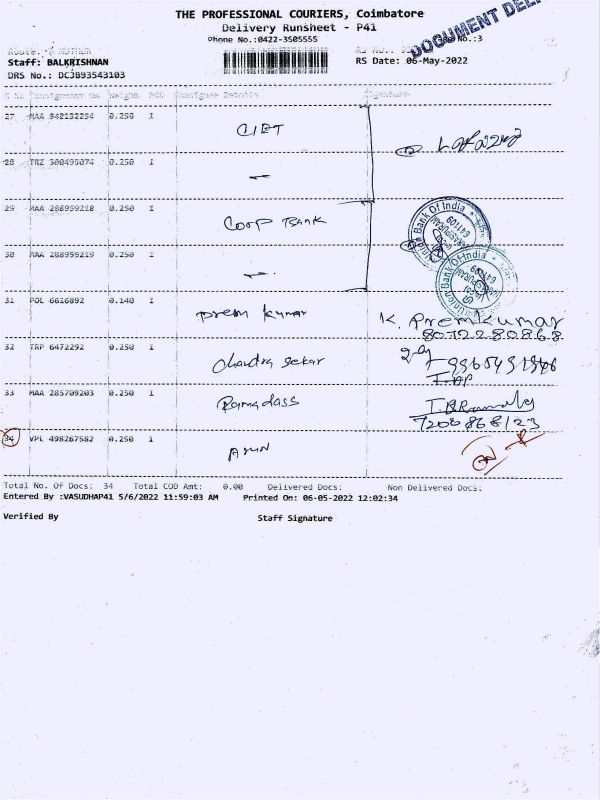 THE PROFESSIONAL COURIERS, Coimbatore
Delivery Runsheet - P41
Phone No.:0422-3505555
No.:3
DOCUMENT DEL
Staff: BALKRISHNAN
RS Date: 06-May-2022
DRS No.: DCJB93543103
Consignment No Weight PCS Consignee Details Signature
27 MAA 942132254 0.250 1
28 TRZ 300495074 0.250 1
29 MAA 288959218 0.250 1 Coop Bank
Union Bank Of India
641109
30 MAA 288959219 0.250 1
Union Bank Of India
31 POL 6616892 0.140 1 prem kumar K. Premkumar
8072280868
32 TRP 6472292 0.250 1 chandra sekar
33 MAA 285709203 0.250 1 Ramadass
7200868123
34 VPL 498267582 0.250 1 Arun
Total No. Of Docs: 34 Total COD Amt: 0.00 Delivered Docs: Non Delivered Docs:
Entered By :VASUDHAP41 5/6/2022 11:59:03 AM Printed On: 06-05-2022 12:02:34
Verified By Staff Signature